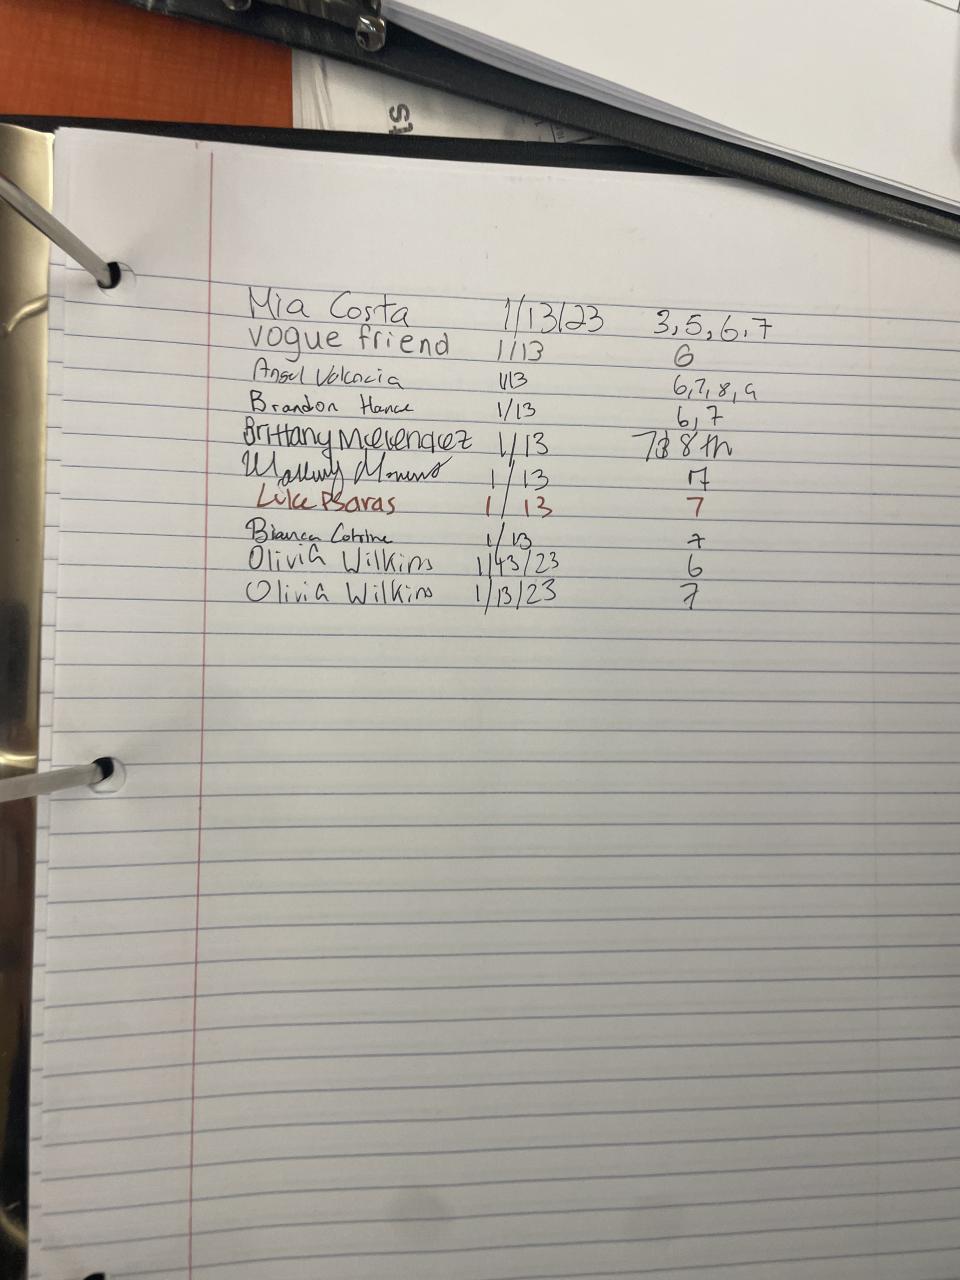 St
Mia Costa 1/13/23 3,5,6,7
vogue friend 1/13 6
Angel Valencia 1/13 6,7,8,9
Brandon Hance 1/13 6,7
Brittany 1/13 7&8th
1/13 7
Luke Psaras 1/13 7
Bianca 1/13 7
Olivia Wilkins 1/13/23 6
Olivia Wilkins 1/13/23 7